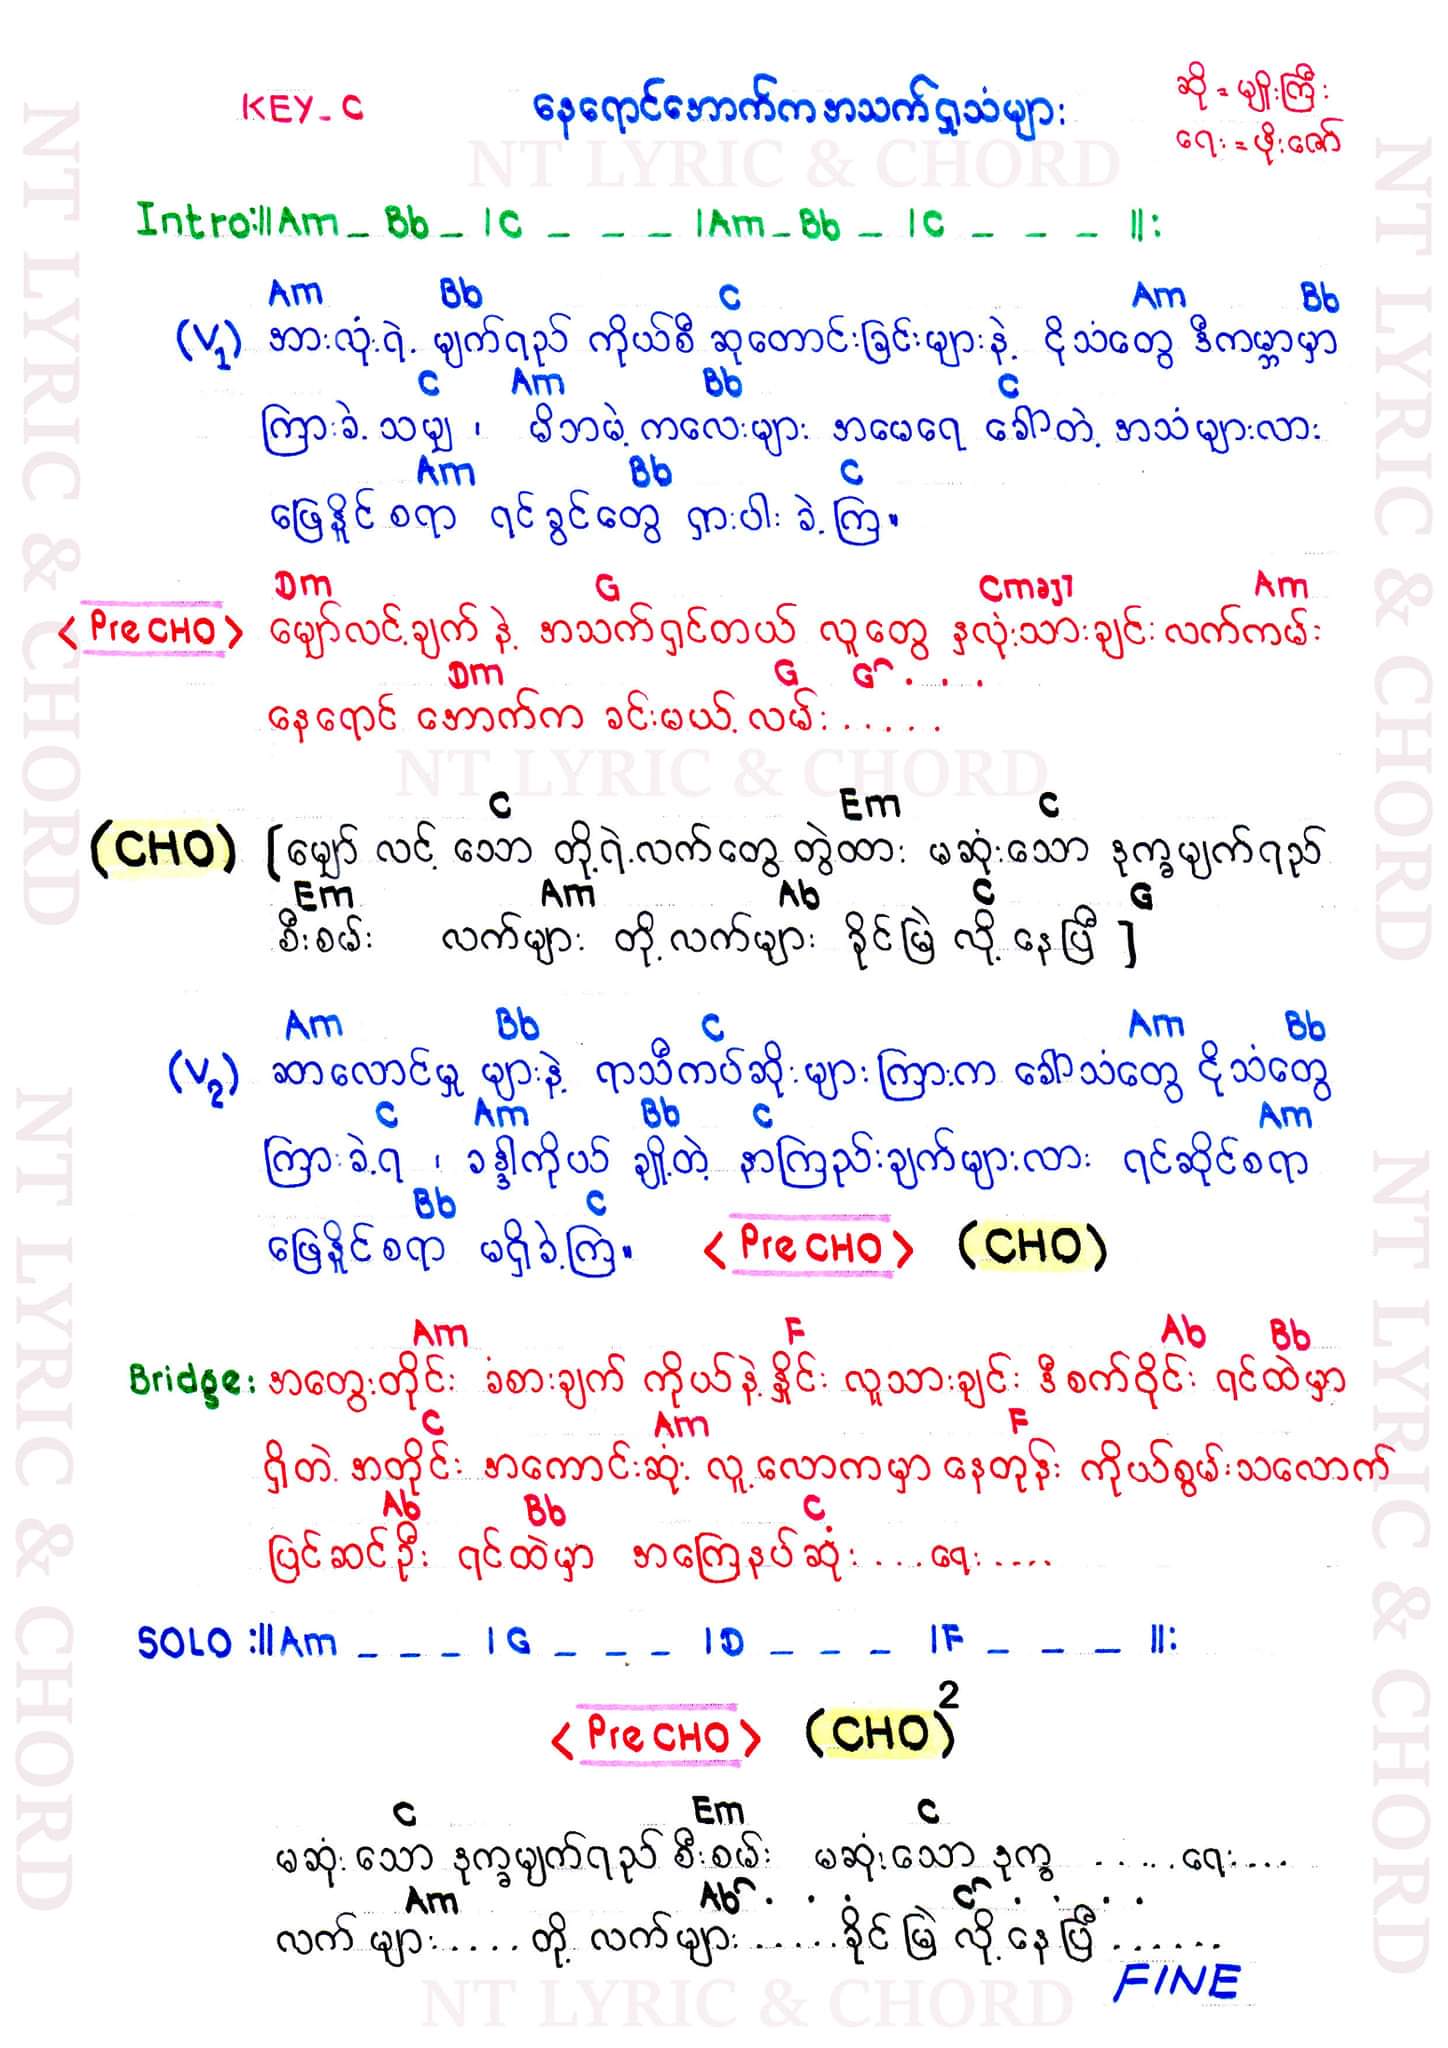 KEY - C
နေရောင်အောက်က အသက်ရှူသံများ
ဆို = မျိုးကြီး
ရေး = ဖိုးဇော်
Intro :||Am _ Bb _ |C _ _ _ |Am _ Bb _ |C _ _ _ ||:
Am Bb C Am Bb
(V1) အားလုံးရဲ့ မျက်ရည် ကိုယ်စီ ဆုတောင်းခြင်းများနဲ့ ငိုသံတွေ ဒီကမ္ဘာမှာ
C Am Bb C
ကြားခဲ့သမျှ ၊ မိဘမဲ့ ကလေးများ အမေရေ ခေါ်တဲ့ အသံများလား
Am Bb C
ဖြေနိုင်စရာ ရင်ခွင်တွေ ရှားပါးခဲ့ကြ။
Dm G Cmaj7 Am
< Pre CHO > မျှော်လင့်ချက်နဲ့ အသက်ရှင်တယ် လူတွေ နှလုံးသားချင်း လက်ကမ်း
Dm G G . . . .
နေရောင်အောက်က ခင်းမယ့်လမ်း . . . . .
C Em C
(CHO) [ မျှော်လင့်သော တို့ရဲ့လက်တွေ တွဲထား မဆုံးသော ဒုက္ခမျက်ရည်
Em Am Ab C G
စီးစမ်း လက်များ တို့လက်များ ခိုင်မြဲလို့နေပြီ ]
Am Bb C Am Bb
(V2) ဆာလောင်မှုများနဲ့ ရာသီကပ်ဆိုးများကြားက ခေါ်သံတွေ ငိုသံတွေ
C Am Bb C Am
ကြားခဲ့ရ ၊ ခန္ဓါကိုယ် ချို့တဲ့ နာကြည်းချက်များလား ရင်ဆိုင်စရာ
Bb C
ဖြေနိုင်စရာ မရှိခဲ့ကြ။ < Pre CHO > (CHO)
Am F Ab Bb
Bridge: အတွေးတိုင်း ခံစားချက် ကိုယ်နဲ့နှိုင်း လူသားချင်း ဒီစက်ဝိုင်း ရင်ထဲမှာ
C Am F
ရှိတဲ့အတိုင်း အကောင်းဆုံး လူ့လောကမှာ နေတုန်း ကိုယ်စွမ်းသလောက်
Ab Bb C
ပြင်ဆင်ဦး ရင်ထဲမှာ အကြေနပ်ဆုံး . . . ရေး . . . .
SOLO :||Am _ _ _ |G _ _ _ |D _ _ _ |F _ _ _ ||:
< Pre CHO > (CHO)2
C Em C
မဆုံးသော ဒုက္ခမျက်ရည် စီးစမ်း မဆုံးသော ဒုက္ခ . . . . . ရေး . . . .
Am Ab . . . C . . . .
လက်များ . . . . . တို့လက်များ . . . . . . ခိုင်မြဲလို့နေပြီ . . . . . . .
FINE
NT LYRIC & CHORD
NT LYRIC & CHORD
NT LYRIC & CHORD
NT LYRIC & CHORD
NT LYRIC & CHORD
NT LYRIC & CHORD
NT LYRIC & CHORD